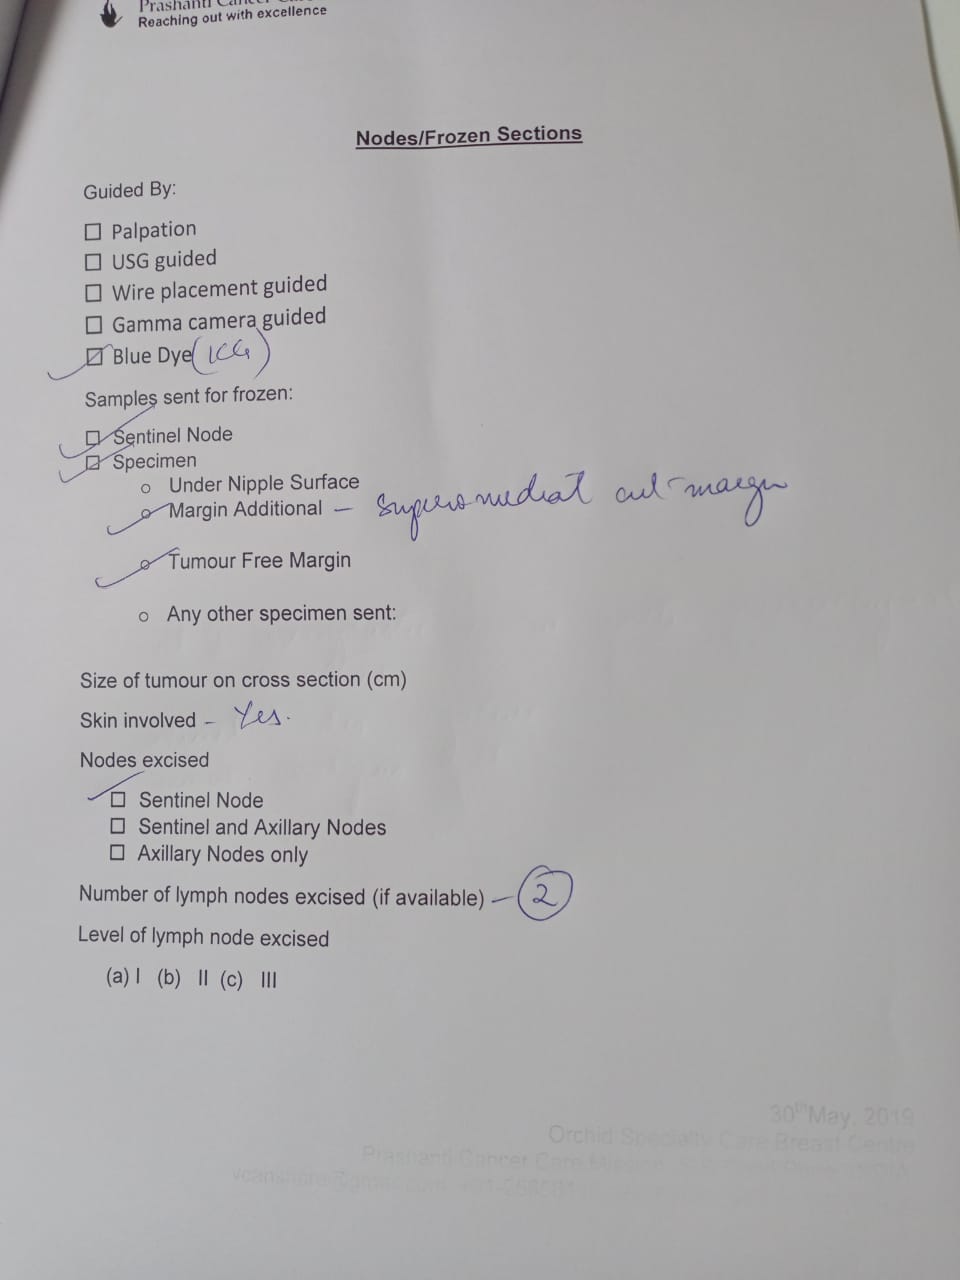 Prashanti Cancer Care
Reaching out with excellence
Nodes/Frozen Sections
Guided By:
☐ Palpation
☐ USG guided
☐ Wire placement guided
☐ Gamma camera guided
☑ Blue Dye (ICG)
Samples sent for frozen:
☑ Sentinel Node
☑ Specimen
o Under Nipple Surface
o Margin Additional — Superomedial cut-margin
o Tumour Free Margin
o Any other specimen sent:
Size of tumour on cross section (cm)
Skin involved – Yes.
Nodes excised
☑ Sentinel Node
☐ Sentinel and Axillary Nodes
☐ Axillary Nodes only
Number of lymph nodes excised (if available) – 2
Level of lymph node excised
(a) I (b) II (c) III
30th May, 2019
Orchid Specialty Care Breast Centre
Prashanti Cancer Care Mission